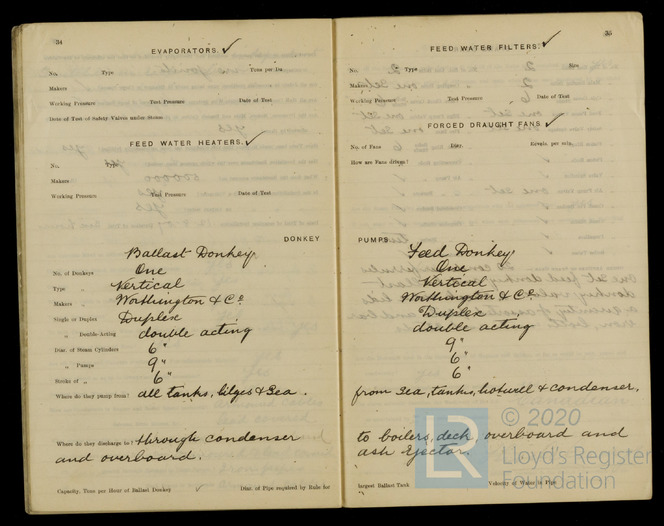 34
EVAPORATORS. ✓
No. Type Tons per Da
Makers
Working Pressure Test Pressure Date of Test
Date of Test of Safety Valves under Steam
FEED WATER HEATERS. ✓
No. Type
Makers
Working Pressure Test Pressure Date of Test
DONKEY
Ballast Donkey
No. of Donkeys One
Type " Vertical
Makers " Worthington & Co
Single or Duplex Duplex
" Double-Acting double acting
Diar. of Steam Cylinders 6"
" Pumps 9"
Stroke of " 6"
Where do they pump from? all tanks, bilges & Sea.
Where do they discharge to? through condenser
and overboard.
Capacity, Tons per Hour of Ballast Donkey ✓ Diar. of Pipe required by Rule for
35
FEED WATER FILTERS. ✓
No. Type Size
Makers
Working Pressure Test Pressure Date of Test
FORCED DRAUGHT FANS ✓
No. of Fans Diar. Revols. per min.
How are Fans driven?
PUMPS.
Feed Donkey
One
Vertical
Worthington & Co
Duplex
double acting
9"
6"
6"
from Sea, tanks, hotwell & condenser.
to boilers, deck, overboard and
ash Ejector.
largest Ballast Tank Velocity of Water in Pipe
LR
© 2020
Lloyd's Register
Foundation